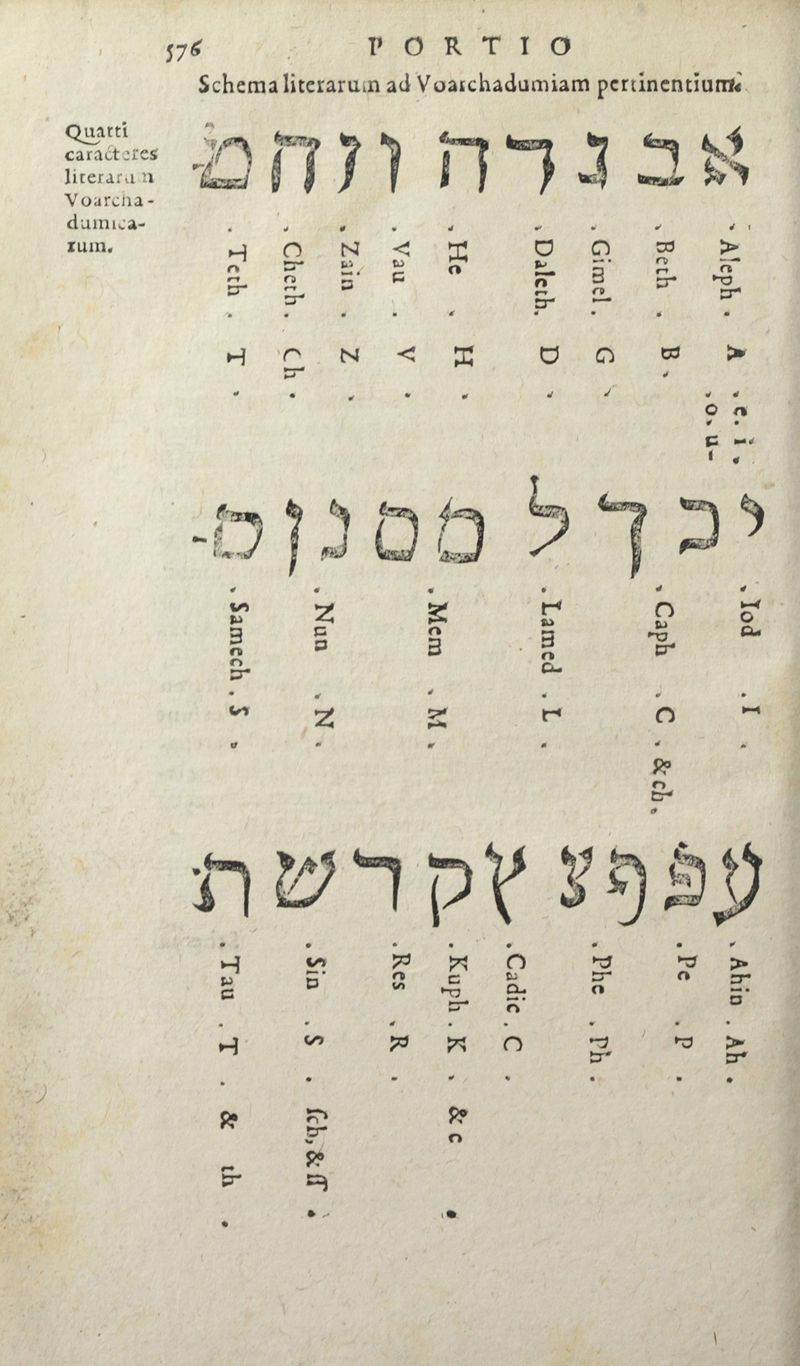 576 PORTIO
Schema literarum ad Voarchadumiam pertinentium
Quarti
caracteres
literarum
Voarcha-
dumica-
rum.
א ב ג ד ה ו ז ח ט
. Aleph . A . e . i .
o . u -
. Beth . B .
. Gimel . G .
. Daleth . D .
. He . H .
. Vau . V .
. Zain . Z .
. Cheth . Ch .
. Teth . T .
י כ ך ל מ ם נ ן ס
. Iod . I .
. Caph . C . & ch .
. Lamed . L .
. Mem . M .
. Nun . N .
. Samech . S .
ע פ ף צ ץ ק ר ש ת
. Ahin . Ah .
. Pe . P .
. Phe . Ph .
. Cadic . C .
. Kuph . K . & c .
. Res . R .
. Sin . S . sch, & ss .
. Tau . T . & th .